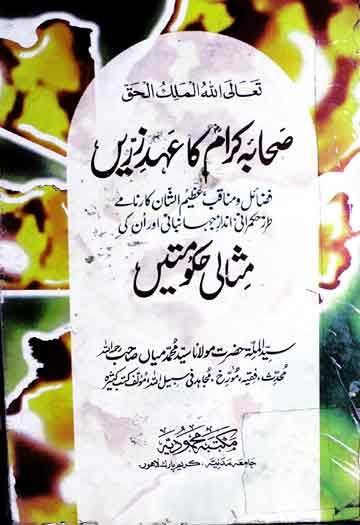 تعالی الله الملک الحق
صحابہ کرام کا عہد زریں
فضائل و مناقب عظیم الشان کارنامے
طرز حکمرانی انداز جہانبانی اور ان کی
مثالی حکومتیں
سید الملۃ حضرت مولانا سید محمد میاں صاحب رحمہ اللہ
محدث، فقیہ، مورخ، مجاہد فی سبیل اللہ، مؤلف کتب کثیرہ
مکتبہ محمودیہ
جامعہ مدنیہ، کریم پارک لاہور